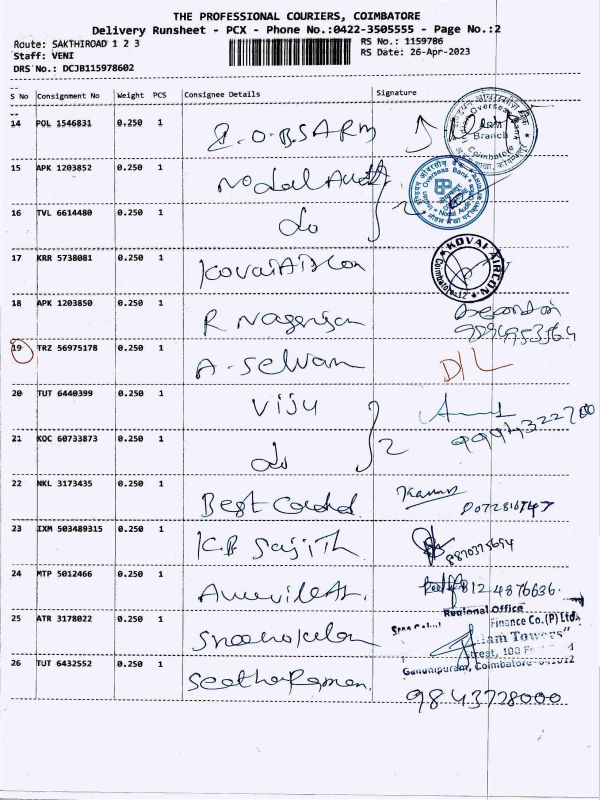 THE PROFESSIONAL COURIERS, COIMBATORE
Delivery Runsheet - PCX - Phone No.:0422-3505555 - Page No.:2
Route: SAKTHIROAD 1 2 3 RS No.: 1159786
Staff: VENI RS Date: 26-Apr-2023
DRS No.: DCJB115978602
S No Consignment No Weight PCS Consignee Details Signature
14 POL 1546831 0.250 1 I.O.B SARM
15 APK 1203852 0.250 1 Nodal Audit
16 TVL 6614480 0.250 1 Do
17 KRR 5738081 0.250 1 Kovai Aircon KOVAI AIRCON Coimbatore-12
18 APK 1203850 0.250 1 R Nagarajan
19 TRZ 56975178 0.250 1 A. Selvam D/L
20 TUT 6440399 0.250 1 Viju
21 KOC 60733873 0.250 1 Do 2 9994322700
22 NKL 3173435 0.250 1 Best
23 IXM 503489315 0.250 1 K.B Sajith
24 MTP 5012466 0.250 1 4876636.
Regional Office
25 ATR 3178022 0.250 1 Finance Co.(P) Ltd.
Towers"
26 TUT 6432552 0.250 1 Seetharaman. Coimbatore
9843728000